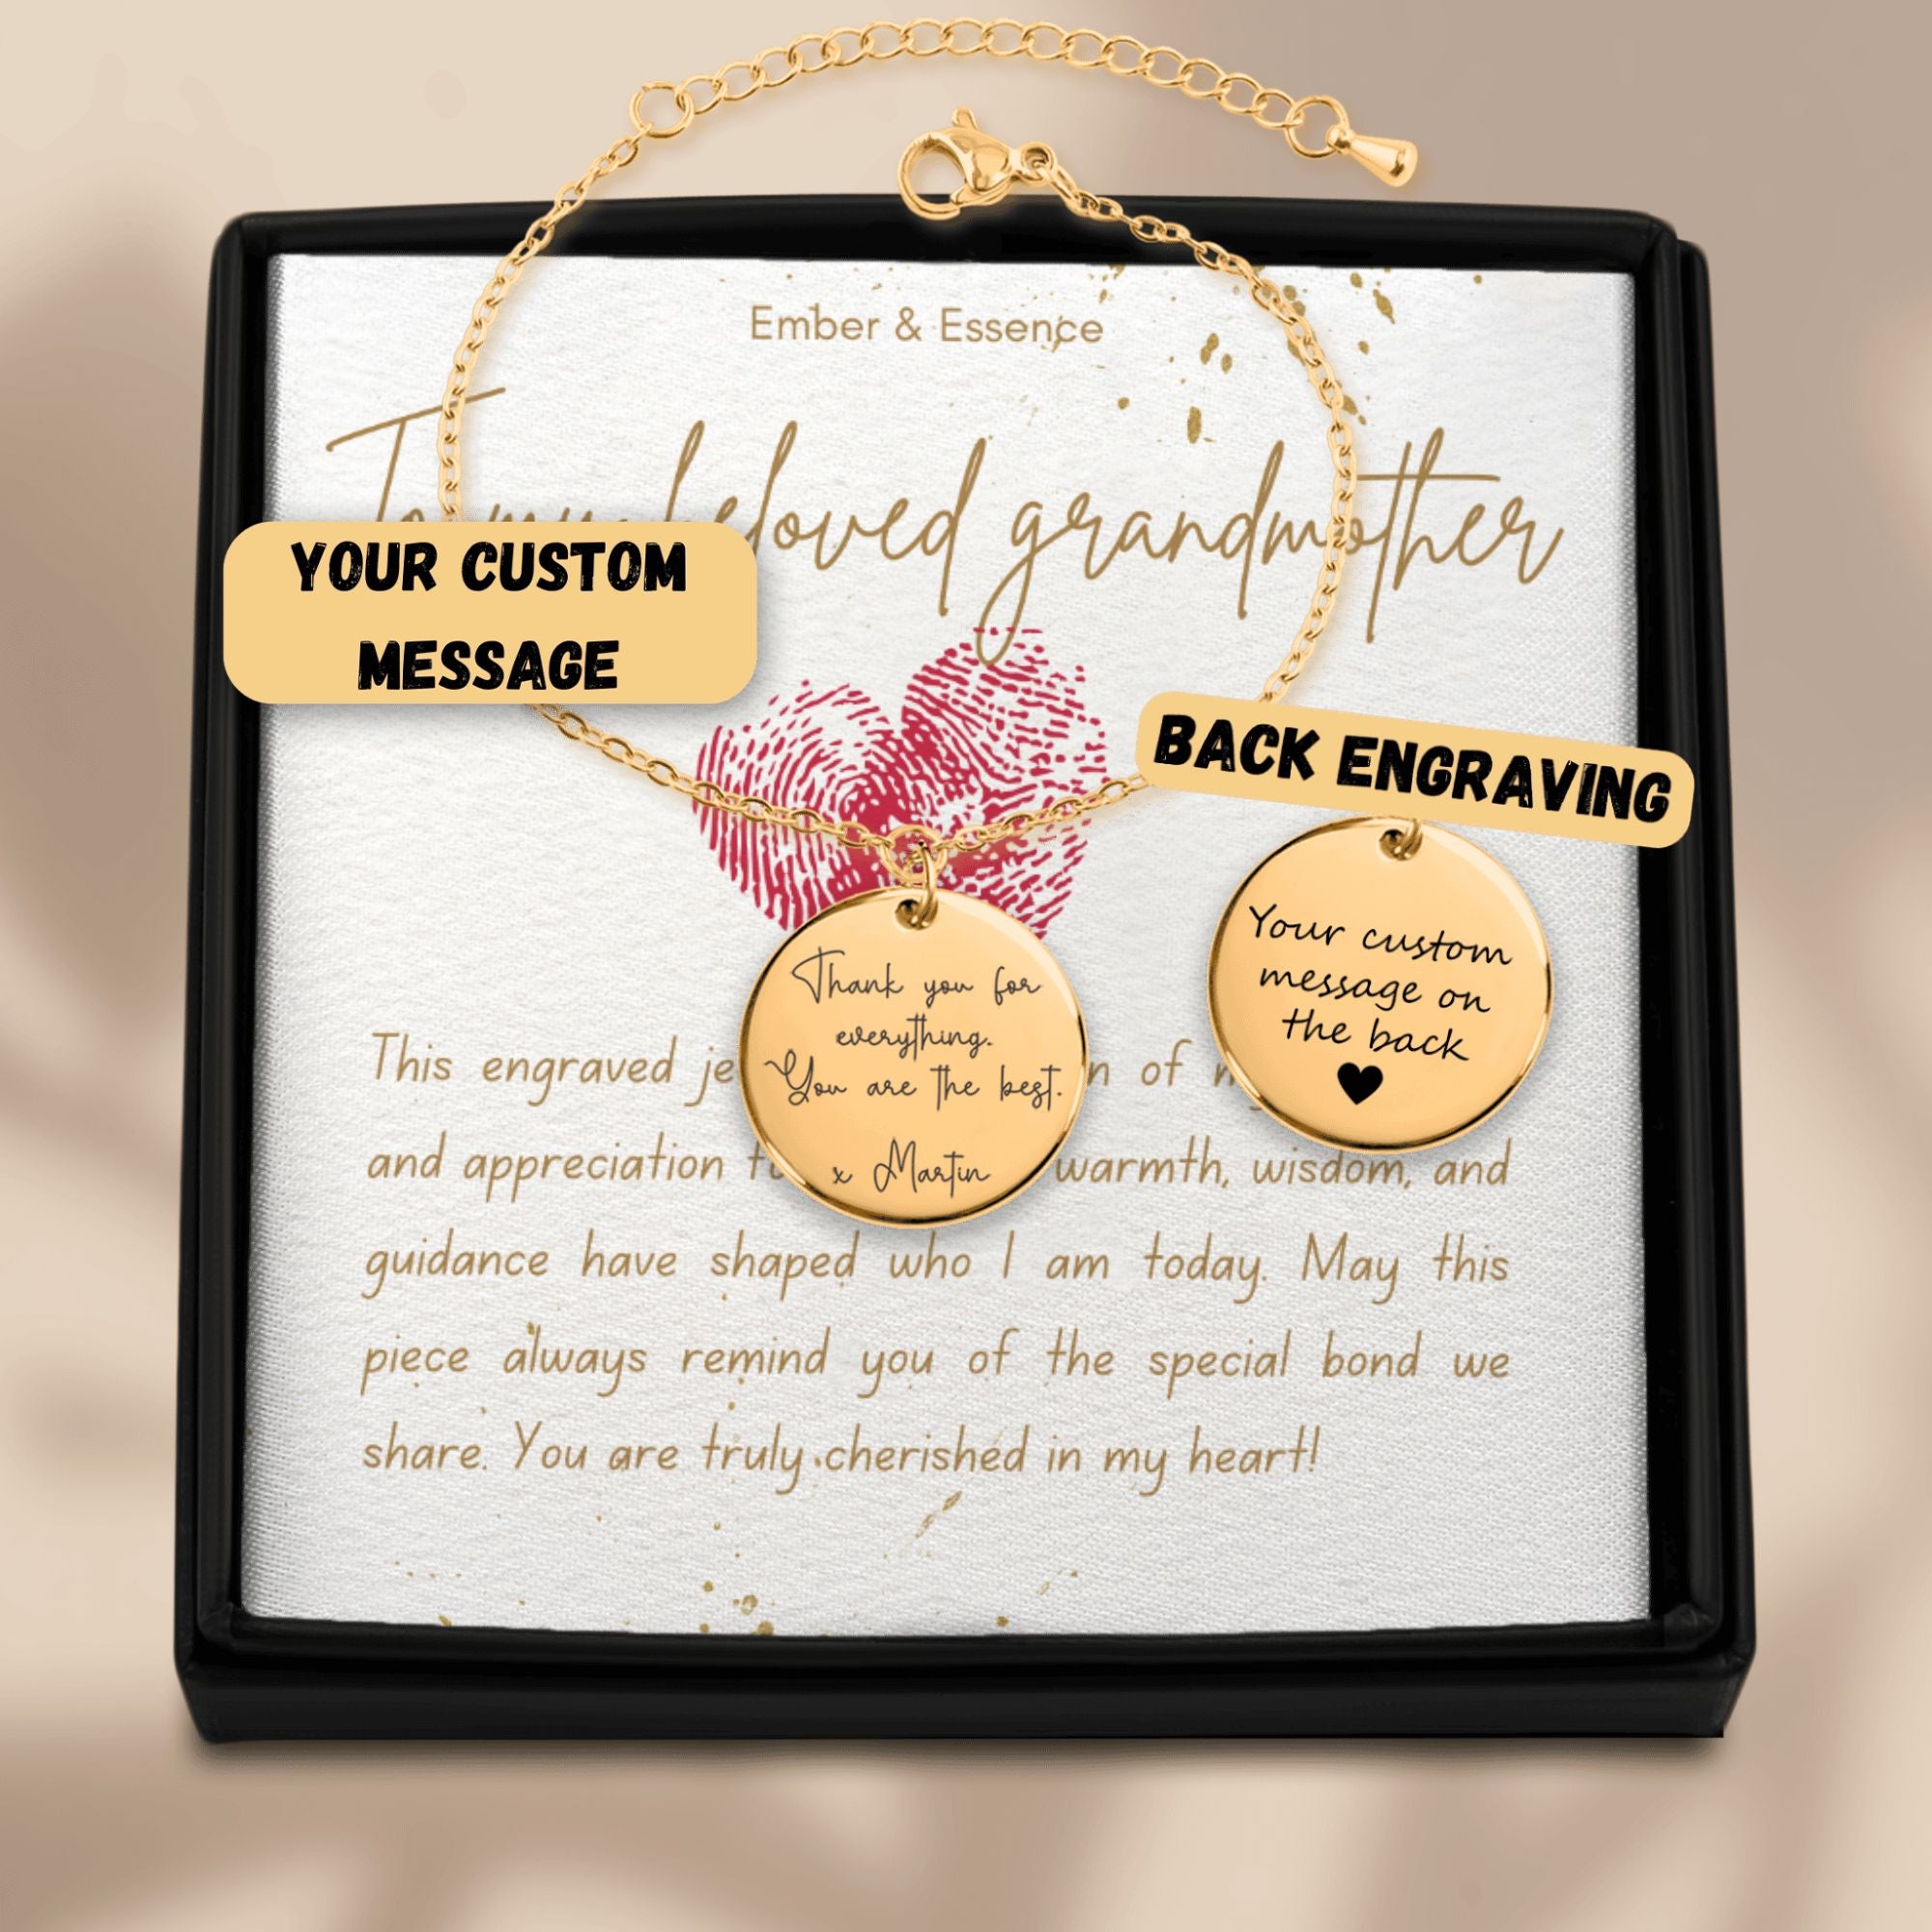 Ember & Essence
beloved grandmother
YOUR CUSTOM
MESSAGE
BACK ENGRAVING
Thank you for
everything.
You are the best.
x Martin
Your custom
message on
the back
This engraved of
and appreciation warmth, wisdom, and
guidance have shaped who I am today. May this
piece always remind you of the special bond we
share. You are truly cherished in my heart!